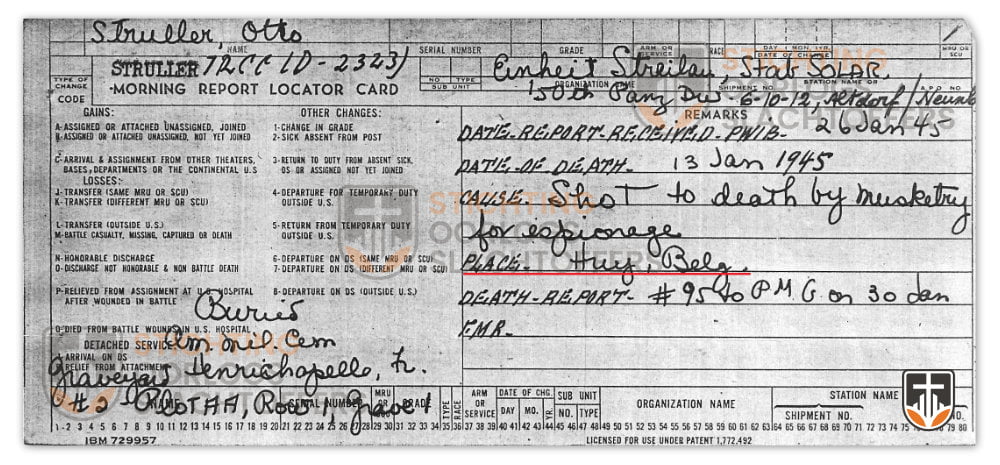 Struller, Otto
NAME
SERIAL NUMBER
GRADE
ARM OR SERVICE
RACE
DAY / MON. YR.
DATE OF CHG.
MRU OR SCU
STRULLER 72CC ID - 2323/
Einheit Streilau, Stab SOLAR,
TYPE OF CHANGE CODE
MORNING REPORT LOCATOR CARD
NO TYPE
SUB UNIT
ORGANIZATION NAME
SHIPMENT NO.
STATION NAME OR
A.P.O NO
150th Panz Div - 6-10-12, Altdorf/
REMARKS
GAINS:
OTHER CHANGES:
A-ASSIGNED OR ATTACHED UNASSIGNED, JOINED
B-ASSIGNED OR ATTACHED UNASSIGNED, NOT YET JOINED
1-CHANGE IN GRADE
2-SICK ABSENT FROM POST
DATE-REPORT-RECEIVED-PWIB- 26 Jan 45
C-ARRIVAL & ASSIGNMENT FROM OTHER THEATERS,
BASES, DEPARTMENTS OR THE CONTINENTAL U.S
3-RETURN TO DUTY FROM ABSENT SICK,
DS OR ASSIGNED NOT YET JOINED
DATE-OF-DEATH- 13 Jan 1945
LOSSES:
J-TRANSFER (SAME MRU OR SCU)
K-TRANSFER (DIFFERENT MRU OR SCU)
4-DEPARTURE FOR TEMPORARY DUTY
OUTSIDE U.S.
CAUSE- Shot to death by musketry
L-TRANSFER (OUTSIDE U.S.)
M-BATTLE CASUALTY, MISSING, CAPTURED OR DEATH
5-RETURN FROM TEMPORARY DUTY
OUTSIDE U.S.
for espionage
N-HONORABLE DISCHARGE
O-DISCHARGE NOT HONORABLE & NON BATTLE DEATH
6-DEPARTURE ON DS (SAME MRU OR SCU)
7-DEPARTURE ON DS (DIFFERENT MRU OR SCU)
PLACE- Huy, Belg.
P-RELIEVED FROM ASSIGNMENT AT U.S. HOSPITAL
AFTER WOUNDED IN BATTLE
8-DEPARTURE ON DS (OUTSIDE U.S.)
DEATH-REPORT- #95 to P.M.G on 30 Jan
Buried
Q-DIED FROM BATTLE WOUNDS IN U.S. HOSPITAL
F.M.R-
DETACHED SERVICE
Am mil Cem
ARRIVAL ON DS
RELIEF FROM ATTACHMENT
Graveyard Henrichapelle, Fr.
#2 Plot AA, Row 1, Grave 1
NAME
SERIAL NUMBER
MRU OR SCU
GRADE
TYPE
RACE
ARM OR SERVICE
DATE OF CHG.
DAY MO. YR.
SUB UNIT
NO. TYPE
ORGANIZATION NAME
STATION NAME
SHIPMENT NO.
1 2 3 4 5 6 7 8 9 10 11 12 13 14 15 16 17 18 19 20 21 22 23 24 25 26 27 28 29 30 31 32 33 34 35 36 37 38 39 40 41 42 43 44 45 46 47 48 49 50 51 52 53 54 55 56 57 58 59 60 61 62 63 64 65 66 67 68 69 70 71 72 73 74 75 76 77 78 79 80
IBM 729957
LICENSED FOR USE UNDER PATENT 1,772,492
STICHTING
OORLOGS
SLACHTOFFERS